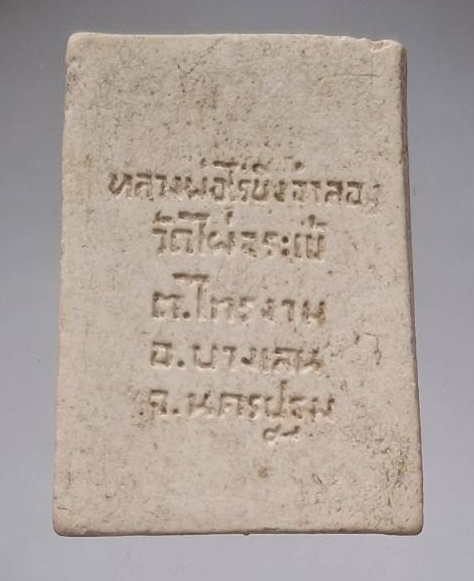 หลวงพ่อไร่ขิงจำลอง
วัดไผ่จระเข้
ต.ไทรงาม
อ.บางเลน
จ.นครปฐม